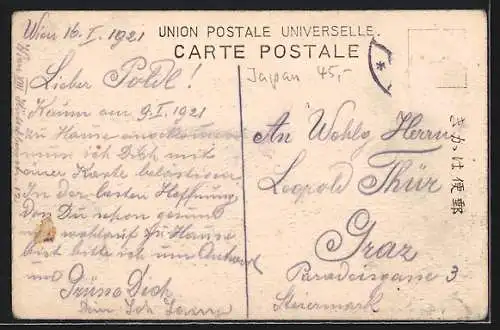 UNION POSTALE UNIVERSELLE.
CARTE POSTALE
Japan 45,-
Wien 16. I. 1921
Lieber Poldl!
Kaum am 9. I. 1921
zu Hause
muss ich Dich mit
einer Karte belästigen
In der besten Hoffnung,
Du schon gesund
und wohlauf zu Hause
bist bitte ich um Antwort
und
Grüße Dich
Dein
An Wohlg. Herrn
Leopold Thür
Graz
Paradeisgasse 3
Steiermark
きかは便郵